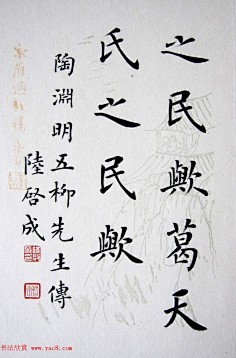 之民歟葛天
氏之民歟
陶淵明五柳先生傳
陸啓成
书法欣赏 www.yac8.com